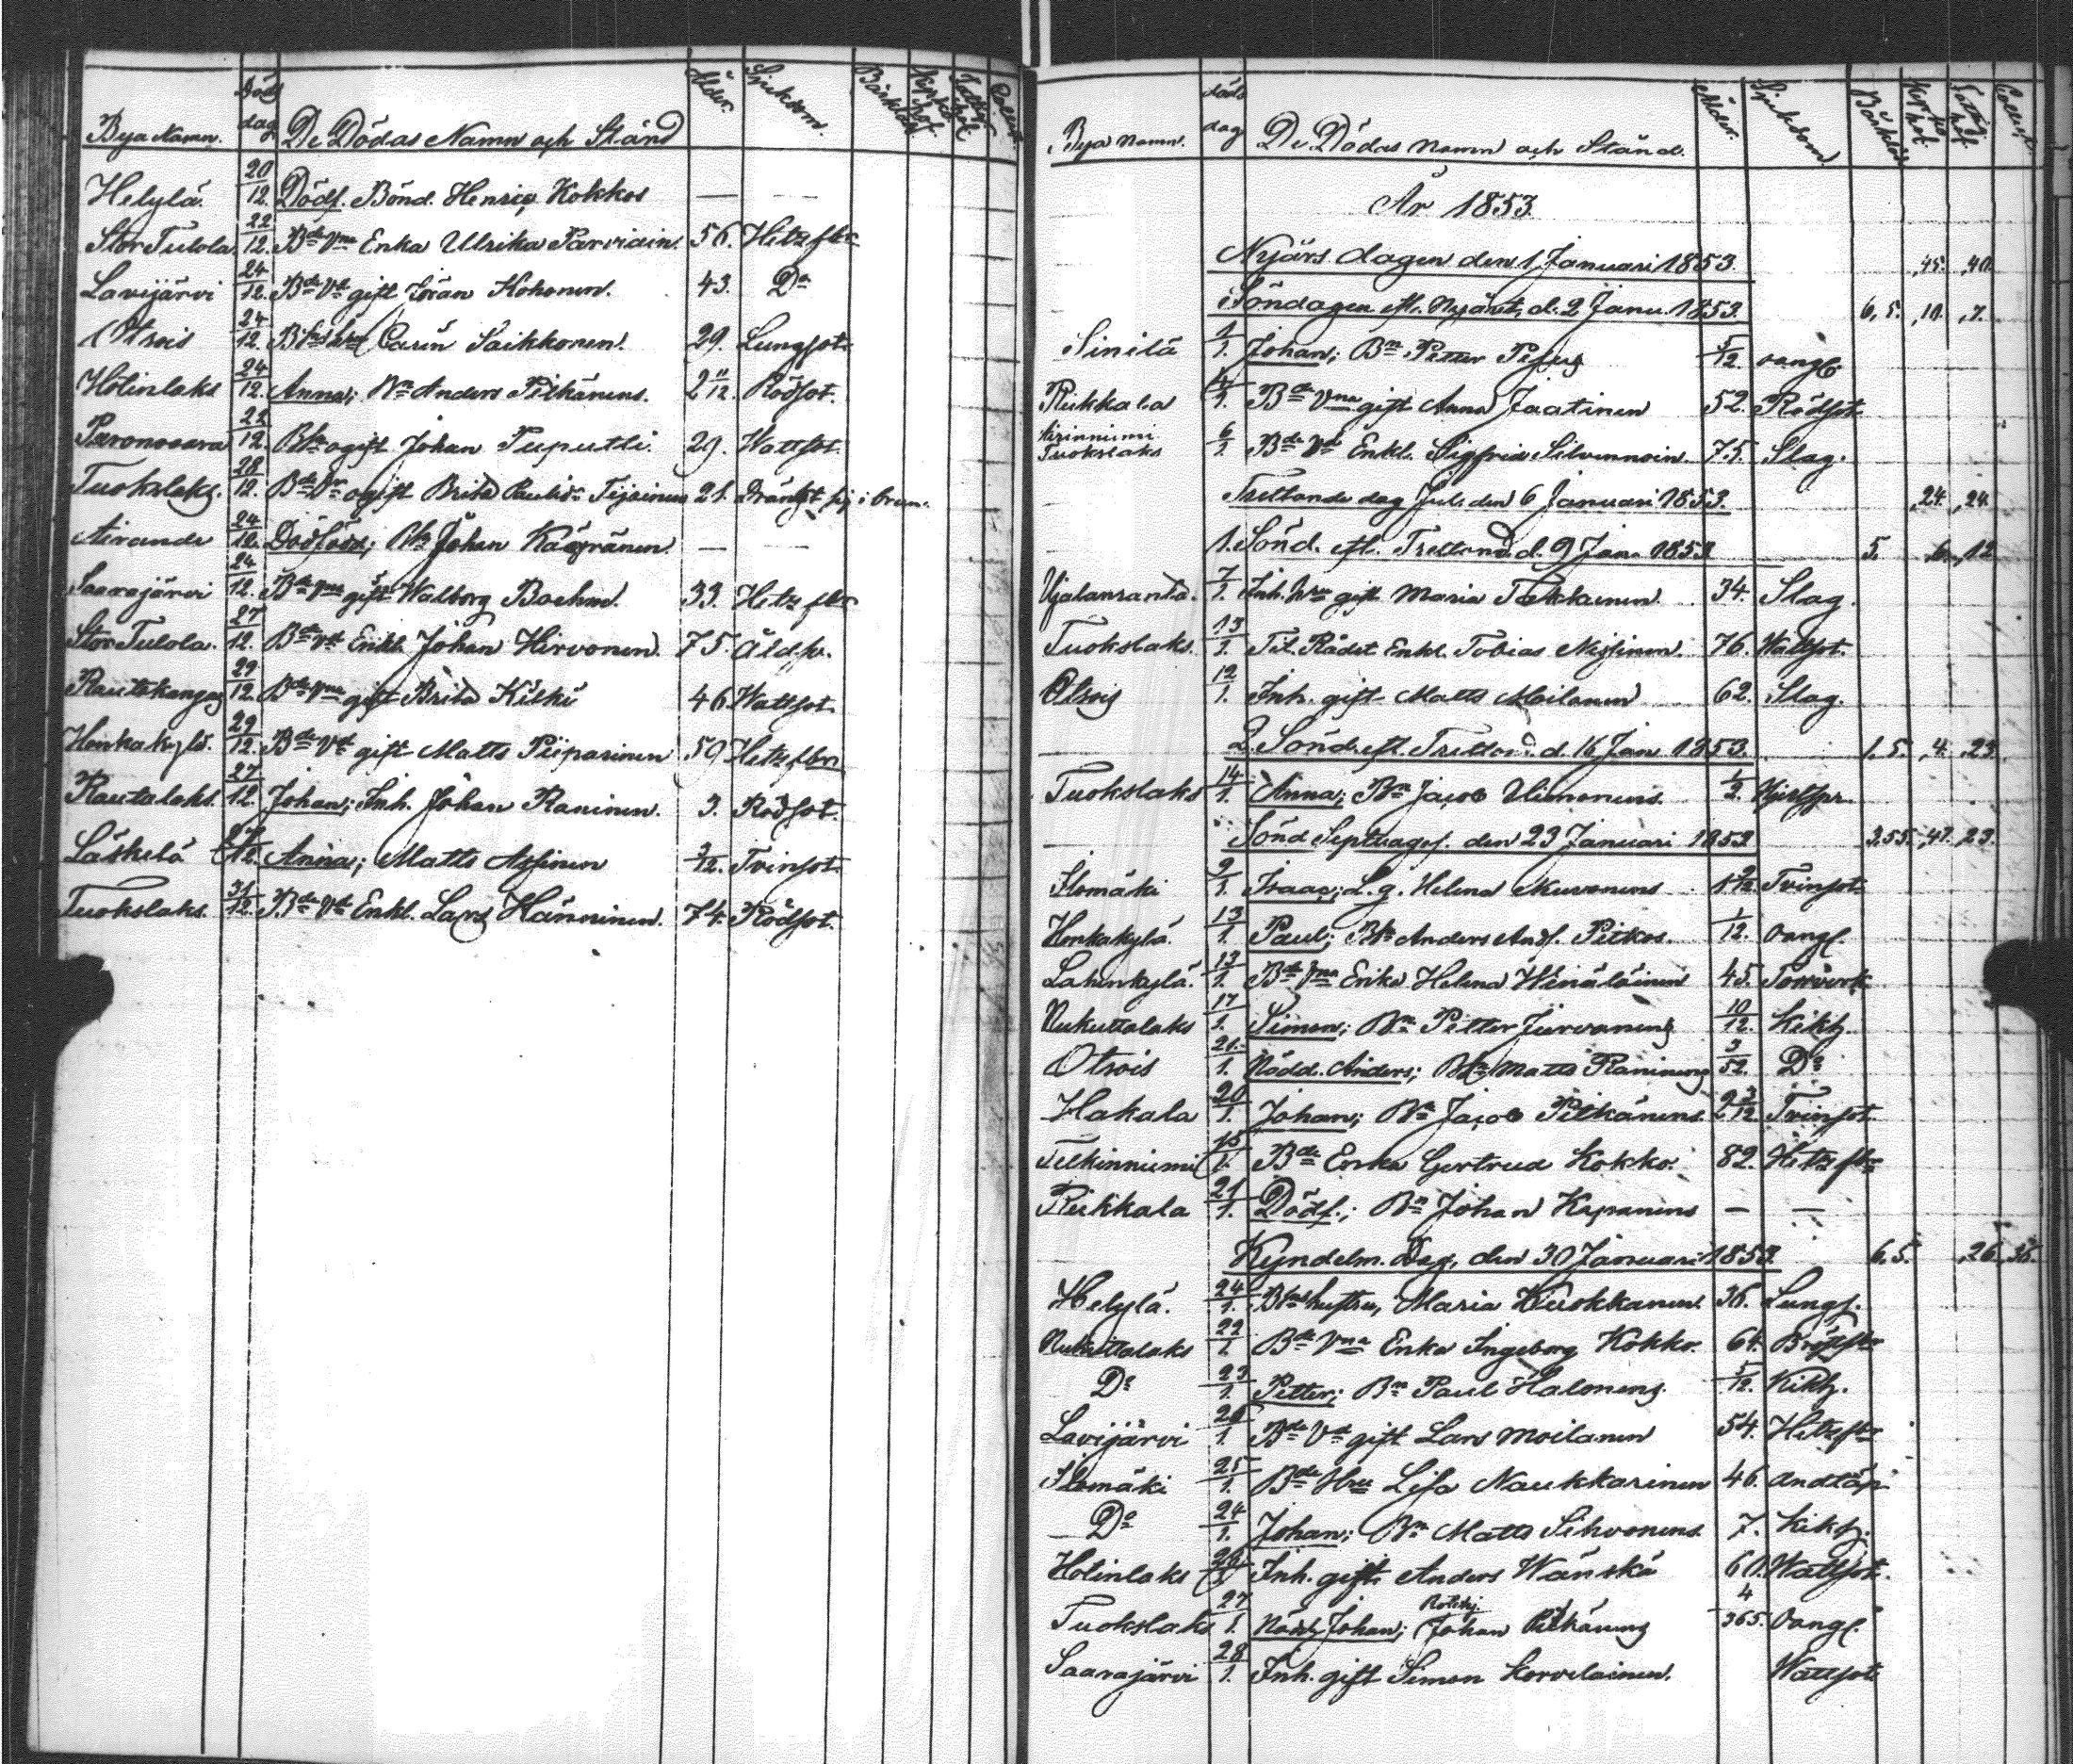 Bya Namn. Döds dag De Dödas Namn och Stånd Ålder. Sjukdom.
Helylä. 20/12. Dödf. Bond. Henric Kokkos — —
Stor Tulola. 22/12. Bde Vna Enka Ulrika Parviain. 56. Hetz fbr
Lavijärvi 24/12. Bde Vd gift Jöran Kohonen. 43. Do
Otsois 24/12. Carin Saikkonen. 29. Lungsot.
Hotinlaks 24/12. Anna; Bn Anders Pitkänens. 2 11/12. Rödsot.
Paronvaara 22/12. ogift Johan Tuputti. 29. Wattsot.
Tuokslaks. 28/12. ogift Brita Paulsdr Tijainen 21. Dränkt sig i brun.
Airanda 24/12. Dödfödd; Johan — —
Saarajärvi 24/12. Bde Vna gift Walborg Boehm. 33. Hetz fbr
Stor Tulola. 27/12. Bde Vd Enkl. Johan Hirvonen. 75. Åldsv.
Rautakangas 29/12. Bde Vna gift Brita Kilki 46. Wattsot.
Honkakylä. 29/12. Bde Vd gift Matts Piiparinen 59 Hetz fbr
Rautalaks. 27/12. Johan; Inh. Johan Raninen. 3. Rödsot.
Läskelä 27/12. Anna; Matts Assinen 3/12. Tvinsot.
Tuokslaks. 31/12. Bde Vd Enkl. Lars Hänninen. 74. Rödsot.
Bya Namn. döds dag De Dödas Namn och Stånd. Ålder. Sjukdom
År 1853.
Nyårs dagen den 1 Januari 1853. ,45. ,40.
Söndagen eft. Nyåret, d. 2 Janu. 1853. 6,5. ,10. ,7.
Sinilä 1/1. Johan; Bn Petter 5/12 oangf.
Riekkala 4/1. Bde Vna gift Anna Jaatinen 52. Rödsot.
Kirinniemi
Tuokslaks 6/1. Bde Vd Enkl. Sigfrid Silvennoin. 75. Slag.
Trettonde dag Jul. den 6 Januari 1853. ,24. ,24.
1. Sönd. eft. Trettond. d. 9 Jan. 1853. 5. 12.
Ujalanranta. 7/1. Inh. gift Maria Tekkanen. 34. Slag.
Tuokslaks. 13/1. Tit. Rådet Enkl. Tobias 76. Wattsot.
Otsois 12/1. Inh. gift Matts Moilanen 62. Slag.
2. Sönd. eft. Tretton. d. 16 Jan. 1853. 1,5. ,4. ,23.
Tuokslaks 14/1. Anna; Bn Jacob Uimonens. 1/2. Hjertspr.
Sönd Septuages. den 23 Januari 1853. 3,55. ,41. ,23.
Ilomäki 9/1. Isaac; L. g. Helena Muvonens 1 9/12. Tvinsot
Honkakylä. 13/1. Paul; Anders Andf. Pitkos. 1/12. oangf.
Lahenkylä. 13/1. Bde Vna Enka Helena Winäläinen 45. Torrverk.
Nukuttalaks 17/1. Simon; Bn Petter Jurvanens 10/12. Kikh.
Otsois 21/1. Nödd. Anders; Matts Raninens 3/52. Do
Hakala 20/1. Johan; Bn Jacob Pitkänens. 2 3/12 Tvinsot.
Telkinniemi 15/1. Bde Enka Gertrud Kokko. 82. Hetz fbr
Riekkala 21/1. Dödf.; Bn Johan Kapanens — —
Kyndelm. Dag, den 30 Januari 1853. 6,5. ,26. ,36.
Helylä. 24/1. hustru, Maria Kuokkanen. 36. Lungs.
Nukuttalaks 22/1. Bde Vna Enka Ingeborg Kokko. 64. Bröstfbr
Do 23/1. Petter; Bn Paul Halonens. 5/12. Kikh.
Lavijärvi 20/1. Bde Vd gift Lars Moilanen 54. Hetz fbr
Ilomäki 25/1. Bde Hru Lisa Naukkarinen 46. Andtäp
Do 24/1. Johan; Bn Matts Sihvonens. 7. Kikh.
Hotinlaks Inh. gift Anders Wänskä 60. Wattsot.
Tuokslaks 27/1. Nödd. Johan; Johan Pitkänens 4/365. oangf.
Saarajärvi 28/1. Inh. gift Simon Korvelainen. Wattsot